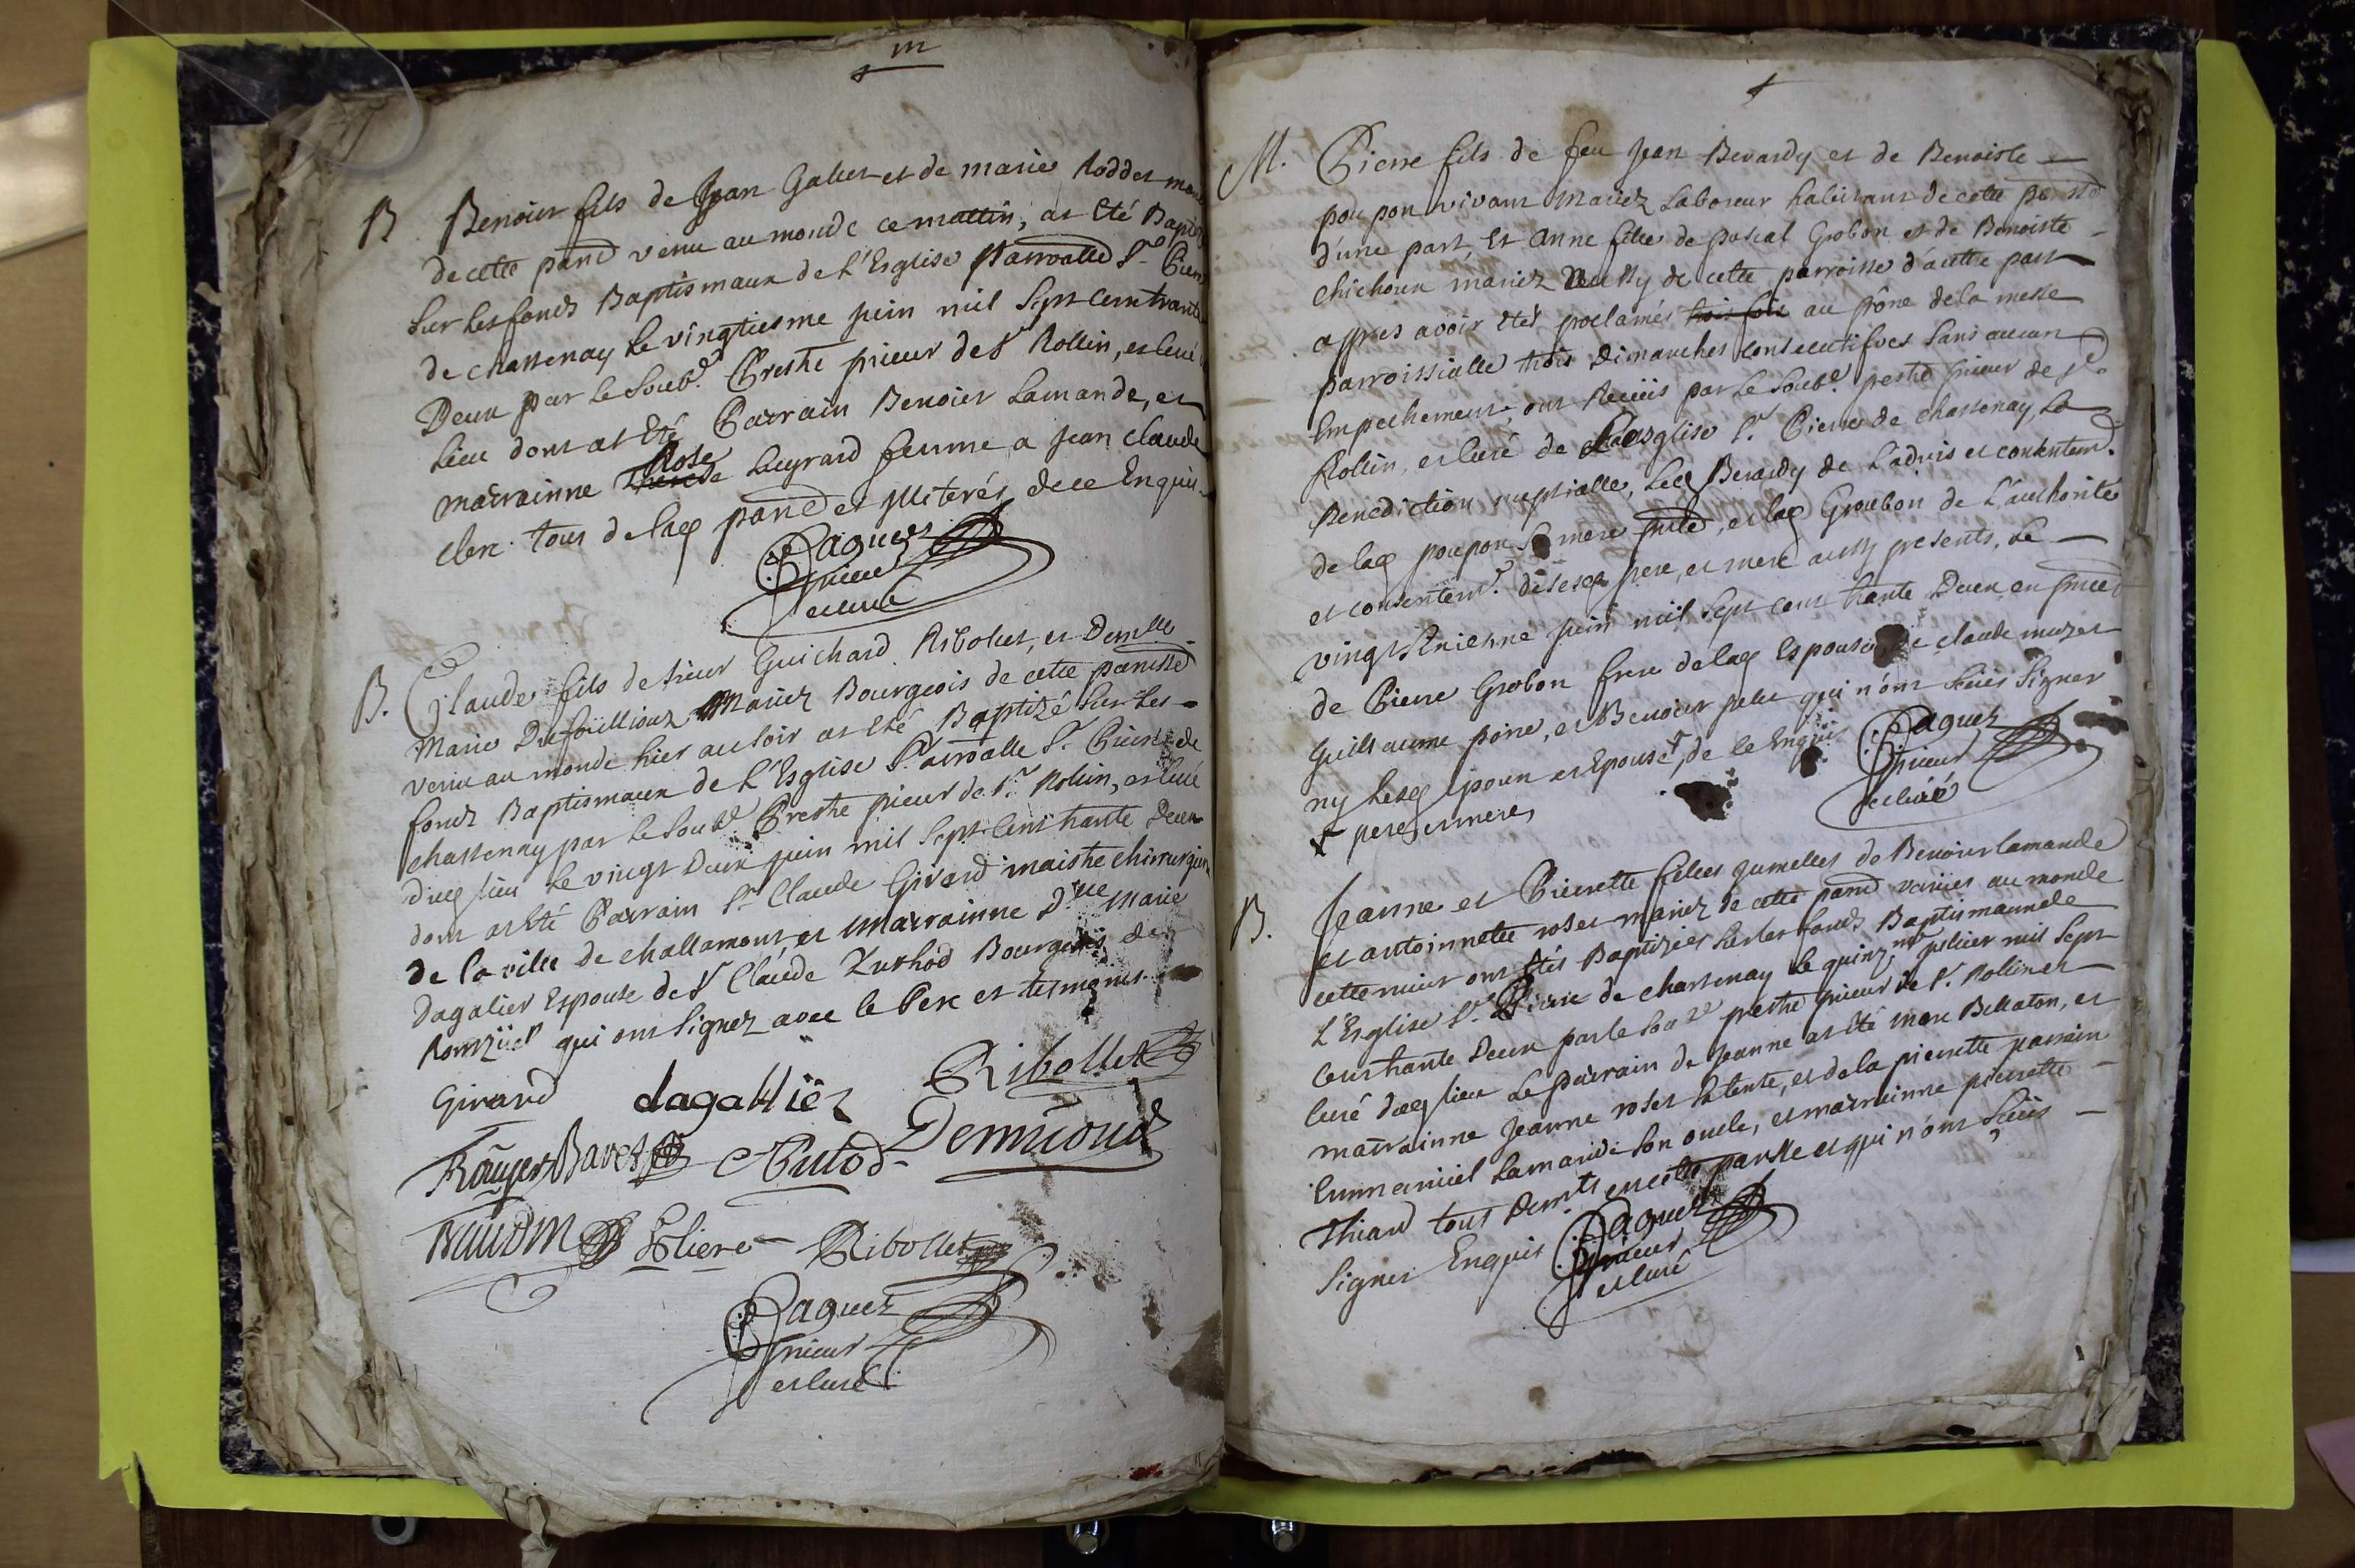 m
B Benoist fils de Jean Galiet et de marie Roddet
de cette parred venu au monde ce mattin, at Eté Baptisé
Sur les fonds Baptismaux de L'Esglise Parroalle St. Pierre
de chastenay Le vingtiesme juin mil Sept Cent trante
Deux par Le Soubd. Prestre prieur de St Rollin, et Curé
Lieu dont at Eté Parrain Benoist Lamande, et
Rose
marrainne Luyrard femme a Jean claude
clerc tous de laq parred et illiterés de ce Enquis
Paquet
prieur
et curé
B. Claude fils de sieur Guichard Ribolet, et Demlle
Marie Dufoüillioux Mariez Bourgeois de cette parrisse
venu au monde hier au soir at Eté Baptizé Sur Les
fonds Baptismaux de L'Esglise Parroalle St. Pierre de
chastenay par Le Soubd Prestre prieur de St. Rolin, et Curé
duq lieu Le vingt Deux juin mil Sept Cent trante Deux
dont at Eté Parrain Sr Claude Girard maistre chirurgien
de la ville de challamont, et Marrainne Dlle Marie
dagalier Espouse de Sr Claude Bourgeois de
qui ont Signez avec le Pere et tesmoins
Girard dagallier Ribollet
Ribollet
Paquet
prieur
et Curé
M. Pierre fils de feu Jean Berardy et de Benoiste
poupon vivant Mariez Laboreur habitant de cette
d'une part, Et Anne fille de pascal Grobon et de Benoiste
chichoux mariez de cette parroisse d'autre part
appres avoir Etés proclamés trois fois au prône de la messe
parroissialle trois Dimanches consecutifves Sans aucun
Empechement ont Receüs par Le Soubd. prestre prieur de St.
Rollin, et Curé de L'Esglise St. Pierre de chastenay, La
Benediction nuptialle, Leq Berardy de L'advis et contentemt.
de laq poupon Sa mere, et laq Groubon de L'authorité
et consentemt. de ses pere, et mere aussy presents, Le
vingt juin mil Sept cent trante Deux en
de Pierre Grobon frere de laq Espouse, de claude muzet
Guillaume poire, et Benoist qui n'ont Sceüs Signer
ny Lesq Epoux et Epouse, de ce Enquis Paquet
prieur
et curé
peres et meres
B. Jeanne et Pierrette filles jumelles de Benoist Lamande
et antoinnette roset mariez de cette parred venües au monde
cette nuit ont Etés Baptizées Sur les fonds Baptismaux de
L'Esglise St. Pierre de chastenay Le quinz.me juliet mil Sept
Cent trante Deux par le Soubd prestre prieur de St. Rollin et
Curé duq lieu Le parrain de Jeanne at Eté Marc Bellaton, et
marrainne Jeanne roset sa tente, et de la pierrette parrain
Emmanüel Lamande Son oncle, et marrainne pierrette
Thiard tous en cette parsse et qui n'ont Sceüs
Signer Enquis Paquet
prieur
et Curé